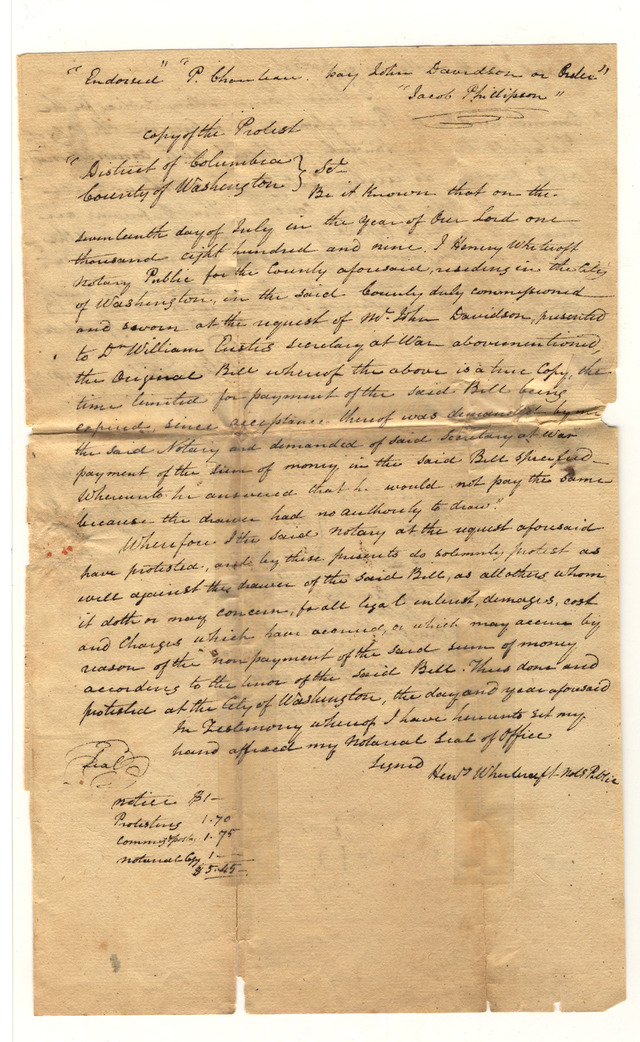 "Endorsed" "P. Chouteau. pay John Davidson or Order"
"Jacob Phillipson"
Copy of the Protest
"District of Columbia }
County of Washington } Sct
Be it Known that on the
seventeenth day of July in the year of Our Lord one
thousand eight hundred and nine, I Henery Whetcroft
Notary Public for the County aforesaid, residing in the City
of Washington, in the said County duly commissioned
and sworn at the request of Mr. John Davidson, presented
to Dr William Eustis Secretary at War abovementioned,
the Original Bill whereof the above is a true Copy, the
time limited for payment of the said Bill being
expired, since acceptance thereof was demanded by me
the said Notary and demanded of said Secretary at War
payment of the sum of money in the said Bill specified
Whereunto he answered that he would not pay the same
because the drawer had no authority to draw."
Wherefore I the said notary at the request aforesaid
have protested, and by these presents do solemnly protest as
well against the drawer of the said Bill, as all others whom
it doth or may concern, for all legal interest, damages, cost
and Charges which have accrued, or which may accrue by
reason of the non payment of the said sum of money
according to the tenor of the said Bill. Thus done and
protested at the City of Washington, the day and year aforesaid
In Testimony whereof I have hereunto set my
hand affixed my Notarial Seal of Office
Seal
Signed Heny Whetcroft Not Public
notice $1-
Protesting 1.70
1.75
notarial Copy 1-
$5.45-